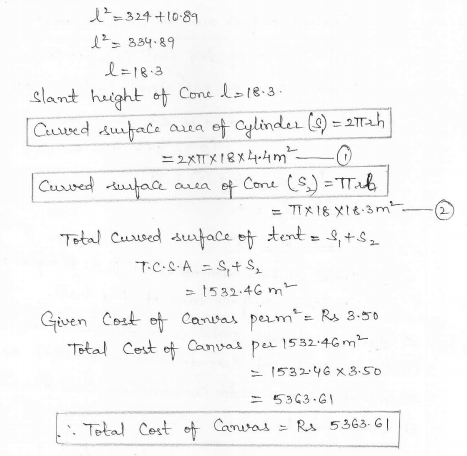 l² = 324 + 10.89
l² = 334.89
l = 18.3
Slant height of Cone l = 18.3.
Curved surface area of Cylinder (S₁) = 2πrh
= 2×π×18×4.4m² —— ①
Curved surface area of Cone (S₂) = πrl
= π×18×18.3m² —— ②
Total Curved surface of tent = S₁+S₂
T.C.S.A = S₁+S₂
= 1532.46 m²
Given Cost of Canvas per m² = Rs 3.50
Total Cost of Canvas per 1532.46m²
= 1532.46 × 3.50
= 5363.61
∴ Total Cost of Canvas = Rs 5363.61